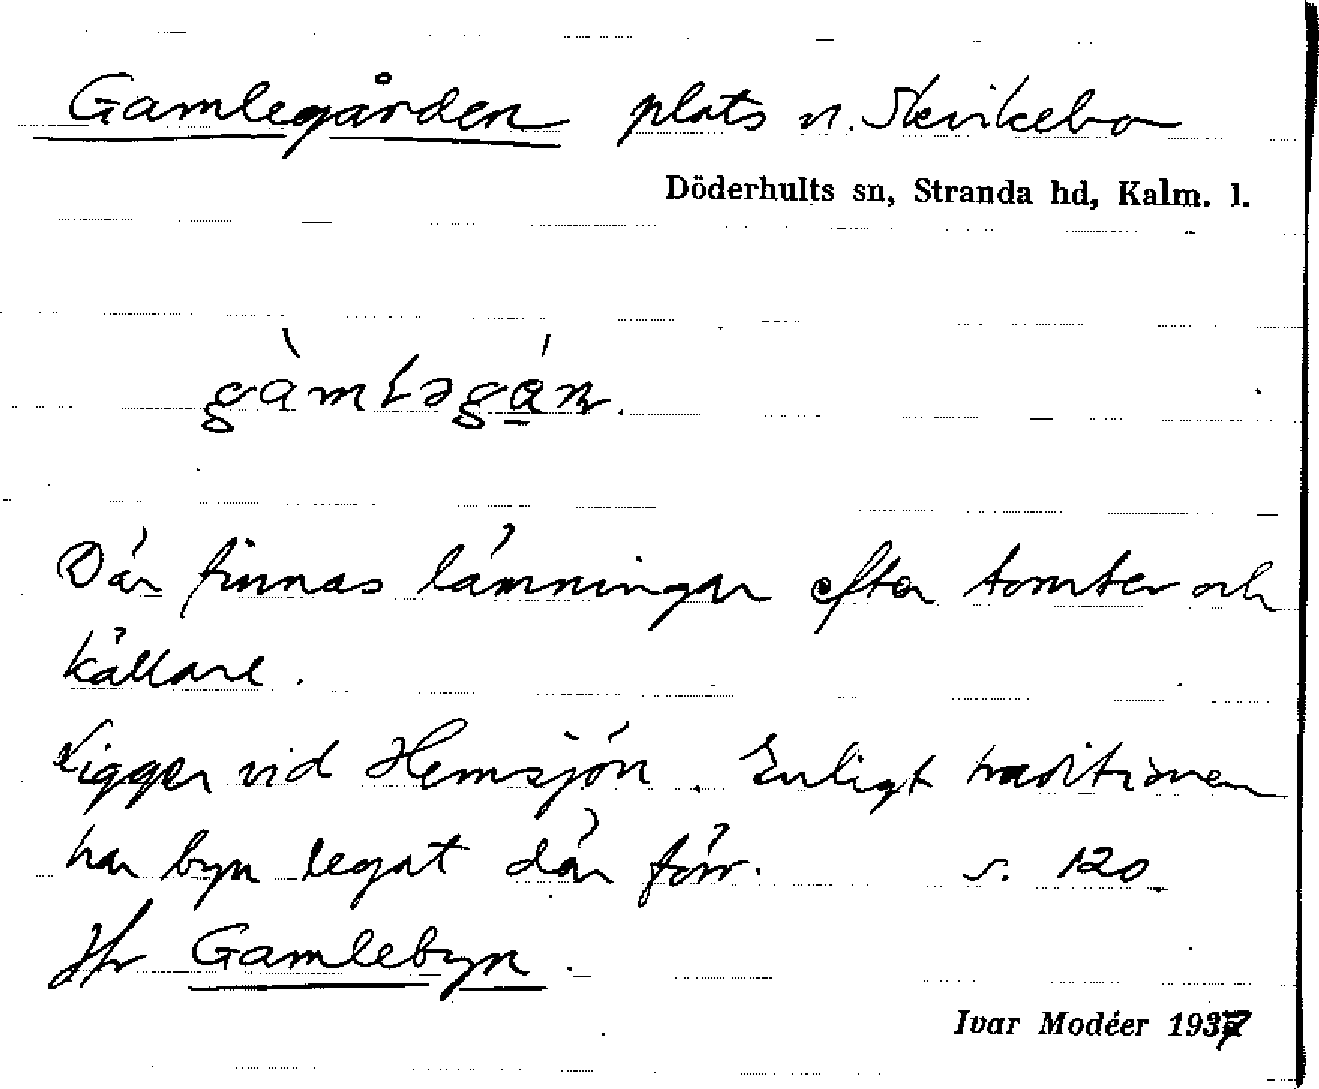 Gamlegården plats n. Skvikebo
Döderhults sn, Stranda hd, Kalm. l.
gàmłəgán.
Där finnas lämningar efter tomter och
källare.
Ligger vid Hemsjön. Enligt traditionen
har byn legat där förr. s. 120
Jfr Gamlebyn.
Ivar Modéer 1937